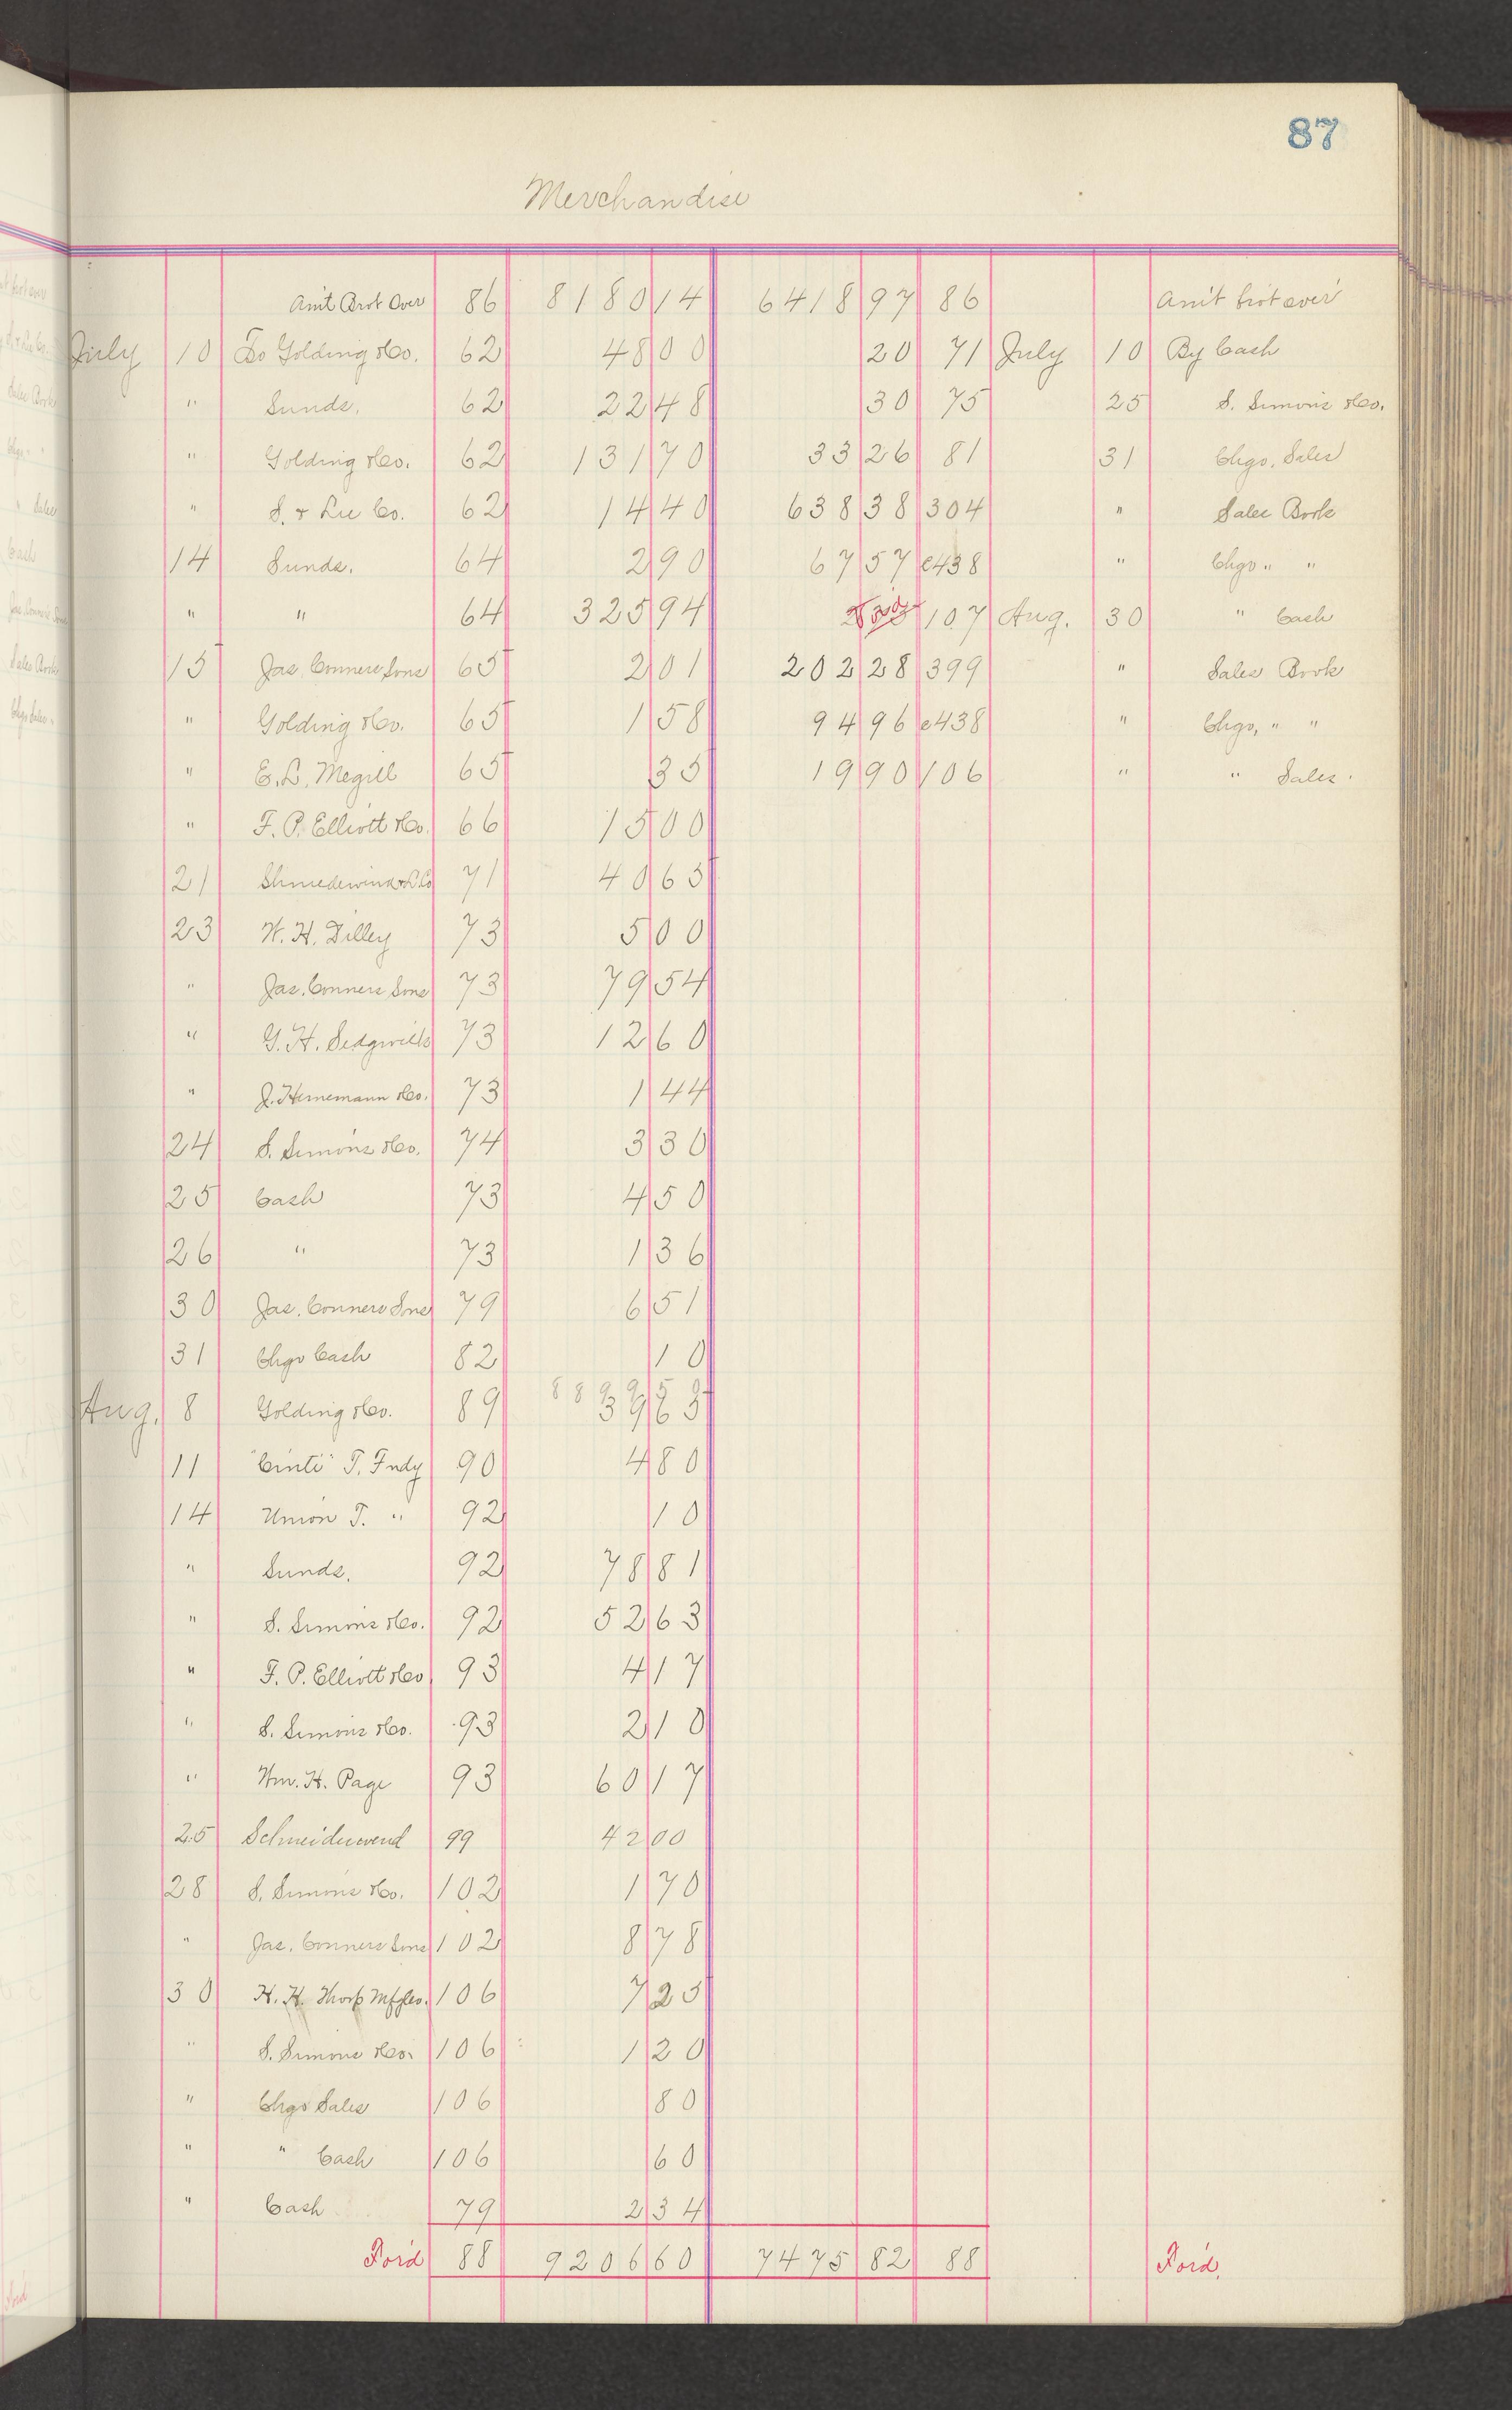 87
Merchandise
Am't Brot Over 86 8180 14 6418 97 86 Am't brot over
July 10 To Golding &Co. 62 48 00 20 71 July 10 By Cash
" Sunds. 62 22 48 30 75 25 S. Simons &Co.
" Golding &Co. 62 131 70 33 26 81 31 Chgo. Sales
" S. & Co. 62 14 40 638 38 304 " Sales Book
14 Sunds. 64 2 90 67 57 c438 " Chgo " "
" " 64 325 94 107 Aug. 30 " Cash
15 Jas. Conners Sons 65 2 01 202 28 399 " Sales Book
" Golding &Co. 65 1 58 94 96 c438 " Chgo, " "
" E. L. Megill 65 35 19 90 106 " " Sales.
" F. P. Elliott &Co. 66 15 00
21 71 40 65
23 W. H. Dilley 73 5 00
" Jas. Conners Sons 73 79 54
" G. H. Sedgwick 73 12 60
" J. Hernemann &Co. 73 1 44
24 S. Simons &Co. 74 3 30
25 Cash 73 4 50
26 " 73 1 36
30 Jas. Conners Sons 79 6 51
31 Chgo Cash 82 10
Aug. 8 Golding &Co. 89 39 63
11 "Cinti" T. Fndy 90 4 80
14 Union T. " 92 10
" Sunds. 92 78 81
" S. Simons &Co. 92 52 63
" F. P. Elliott &Co. 93 4 17
" S. Simons &Co. 93 2 10
" Wm. H. Page 93 60 17
25 Schneidewend 99 42 00
28 S. Simons &Co. 102 1 70
" Jas. Conners Sons 102 8 78
30 H. H. Thorp Mfg Co. 106 7 25
" S. Simons &Co. 106 1 20
" Chgo Sales 106 80
" " Cash 106 60
" Cash 79 2 34
For'd 88 9206 60 7475 82 88 For'd.